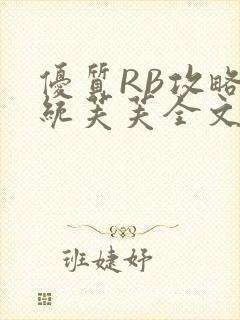 優質RB攻略
統芙芙全文
班婕妤